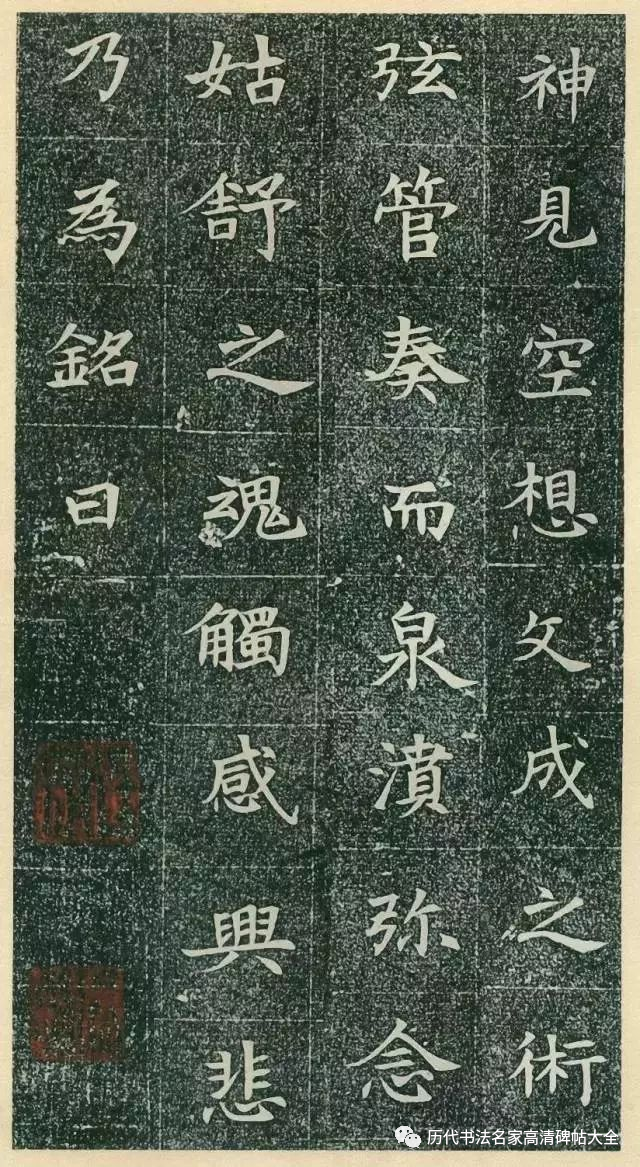 神見空想文成之術
弦管奏而泉濆弥念
姑舒之魂觸感興悲
乃為銘曰
历代书法名家高清碑帖大全